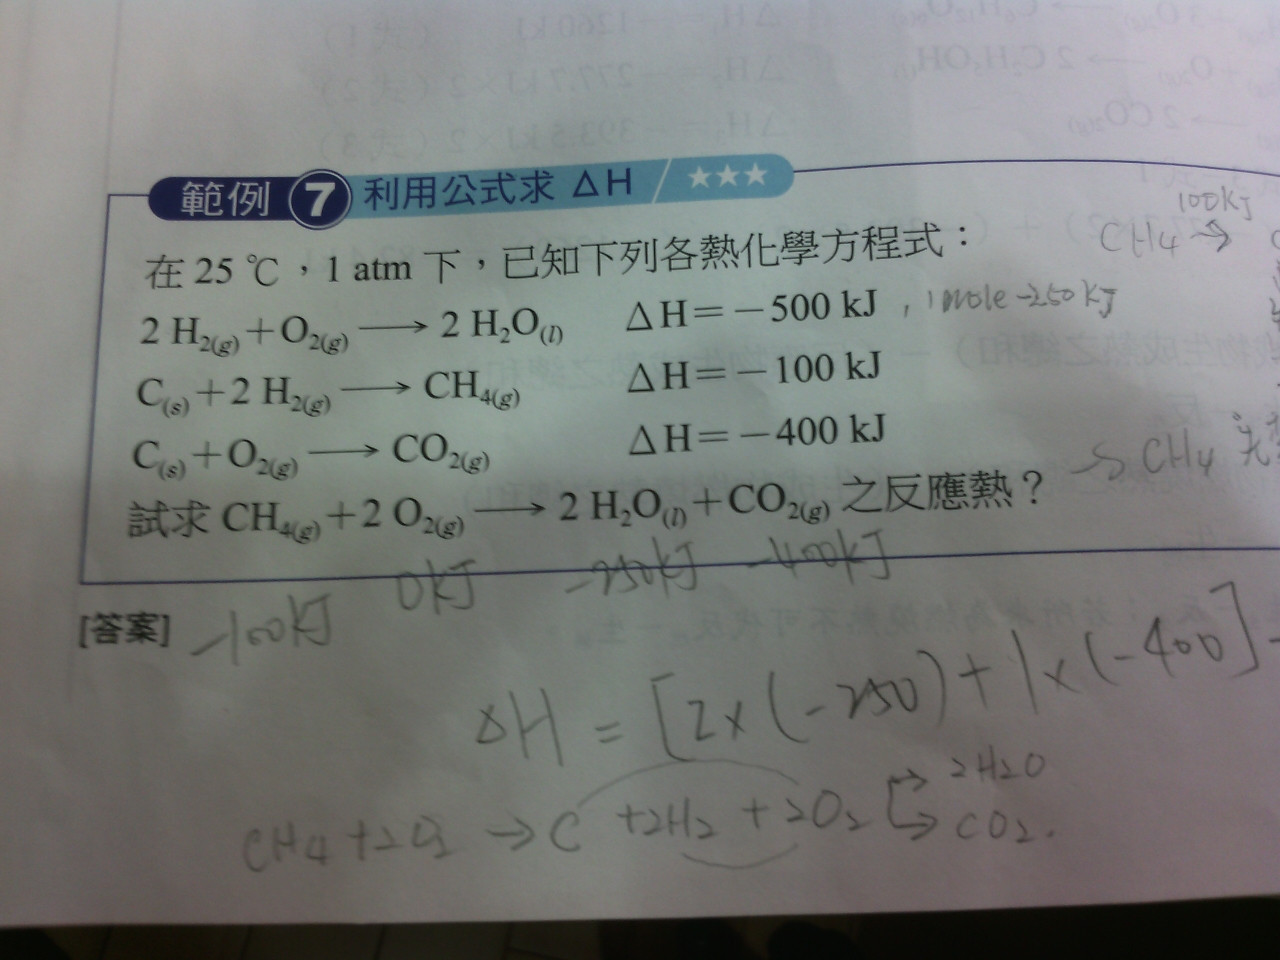 範例 7 利用公式求 ΔH ★★★
在 25 ℃，1 atm 下，已知下列各熱化學方程式：
2 H₂(g)＋O₂(g) ⟶ 2 H₂O(l) ΔH＝－500 kJ , 1 mole -250 KJ
C(s)＋2 H₂(g) ⟶ CH₄(g) ΔH＝－100 kJ
C(s)＋O₂(g) ⟶ CO₂(g) ΔH＝－400 kJ
試求 CH₄(g)＋2 O₂(g) ⟶ 2 H₂O(l)＋CO₂(g) 之反應熱？
100KJ
CH4 →
→ CH4
[答案] -100kJ 0kJ -250kJ -400kJ
ΔH = [2×(-250)+1×(-400]-
CH4+2O2 → C +2H2 + 2O2 → 2H2O
→ CO2.